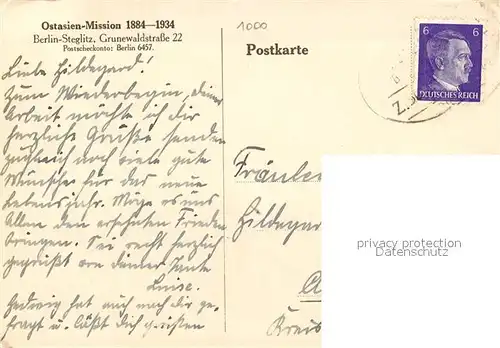 Ostasien-Mission 1884—1934
Berlin-Steglitz, Grunewaldstraße 22
Postscheckkonto: Berlin 6457.
1000
Postkarte
6 6
DEUTSCHES REICH
Liebe Hildegard!
Zum Wiederbeginn deiner
Arbeit möchte ich dir
herzliche Grüße senden
zugleich noch viele gute
Wünsche für das neue
Lebensjahr. Möge es uns
Allen den ersehnten Frieden
bringen. Sei recht herzlich
gegrüßt von deiner Tante
Luise.
Hedwig hat auch nach dir ge-
fragt u. läßt dich grüßen
Fräulein
Hildegar
Kreis
privacy protection
Datenschutz